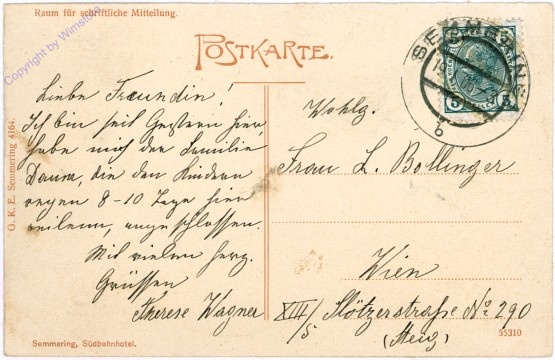 Raum für schriftliche Mitteilung.
Copyright by Wimstore
POSTKARTE.
SEMMERING
5 5
b
Liebe Freundin!
Ich bin seit Gestern hier,
habe mich der Familie
die den Kindern
wegen 8-10 Tage hier
angeschlossen.
Mit vielen herz.
Grüssen
Therese Wagner
Wohlg.
Frau L. Bollinger
Wien
XIII/5 Flötzerstraße No 290
Semmering, Südbahnhotel.
O. K. E. Semmering 4164.
55310